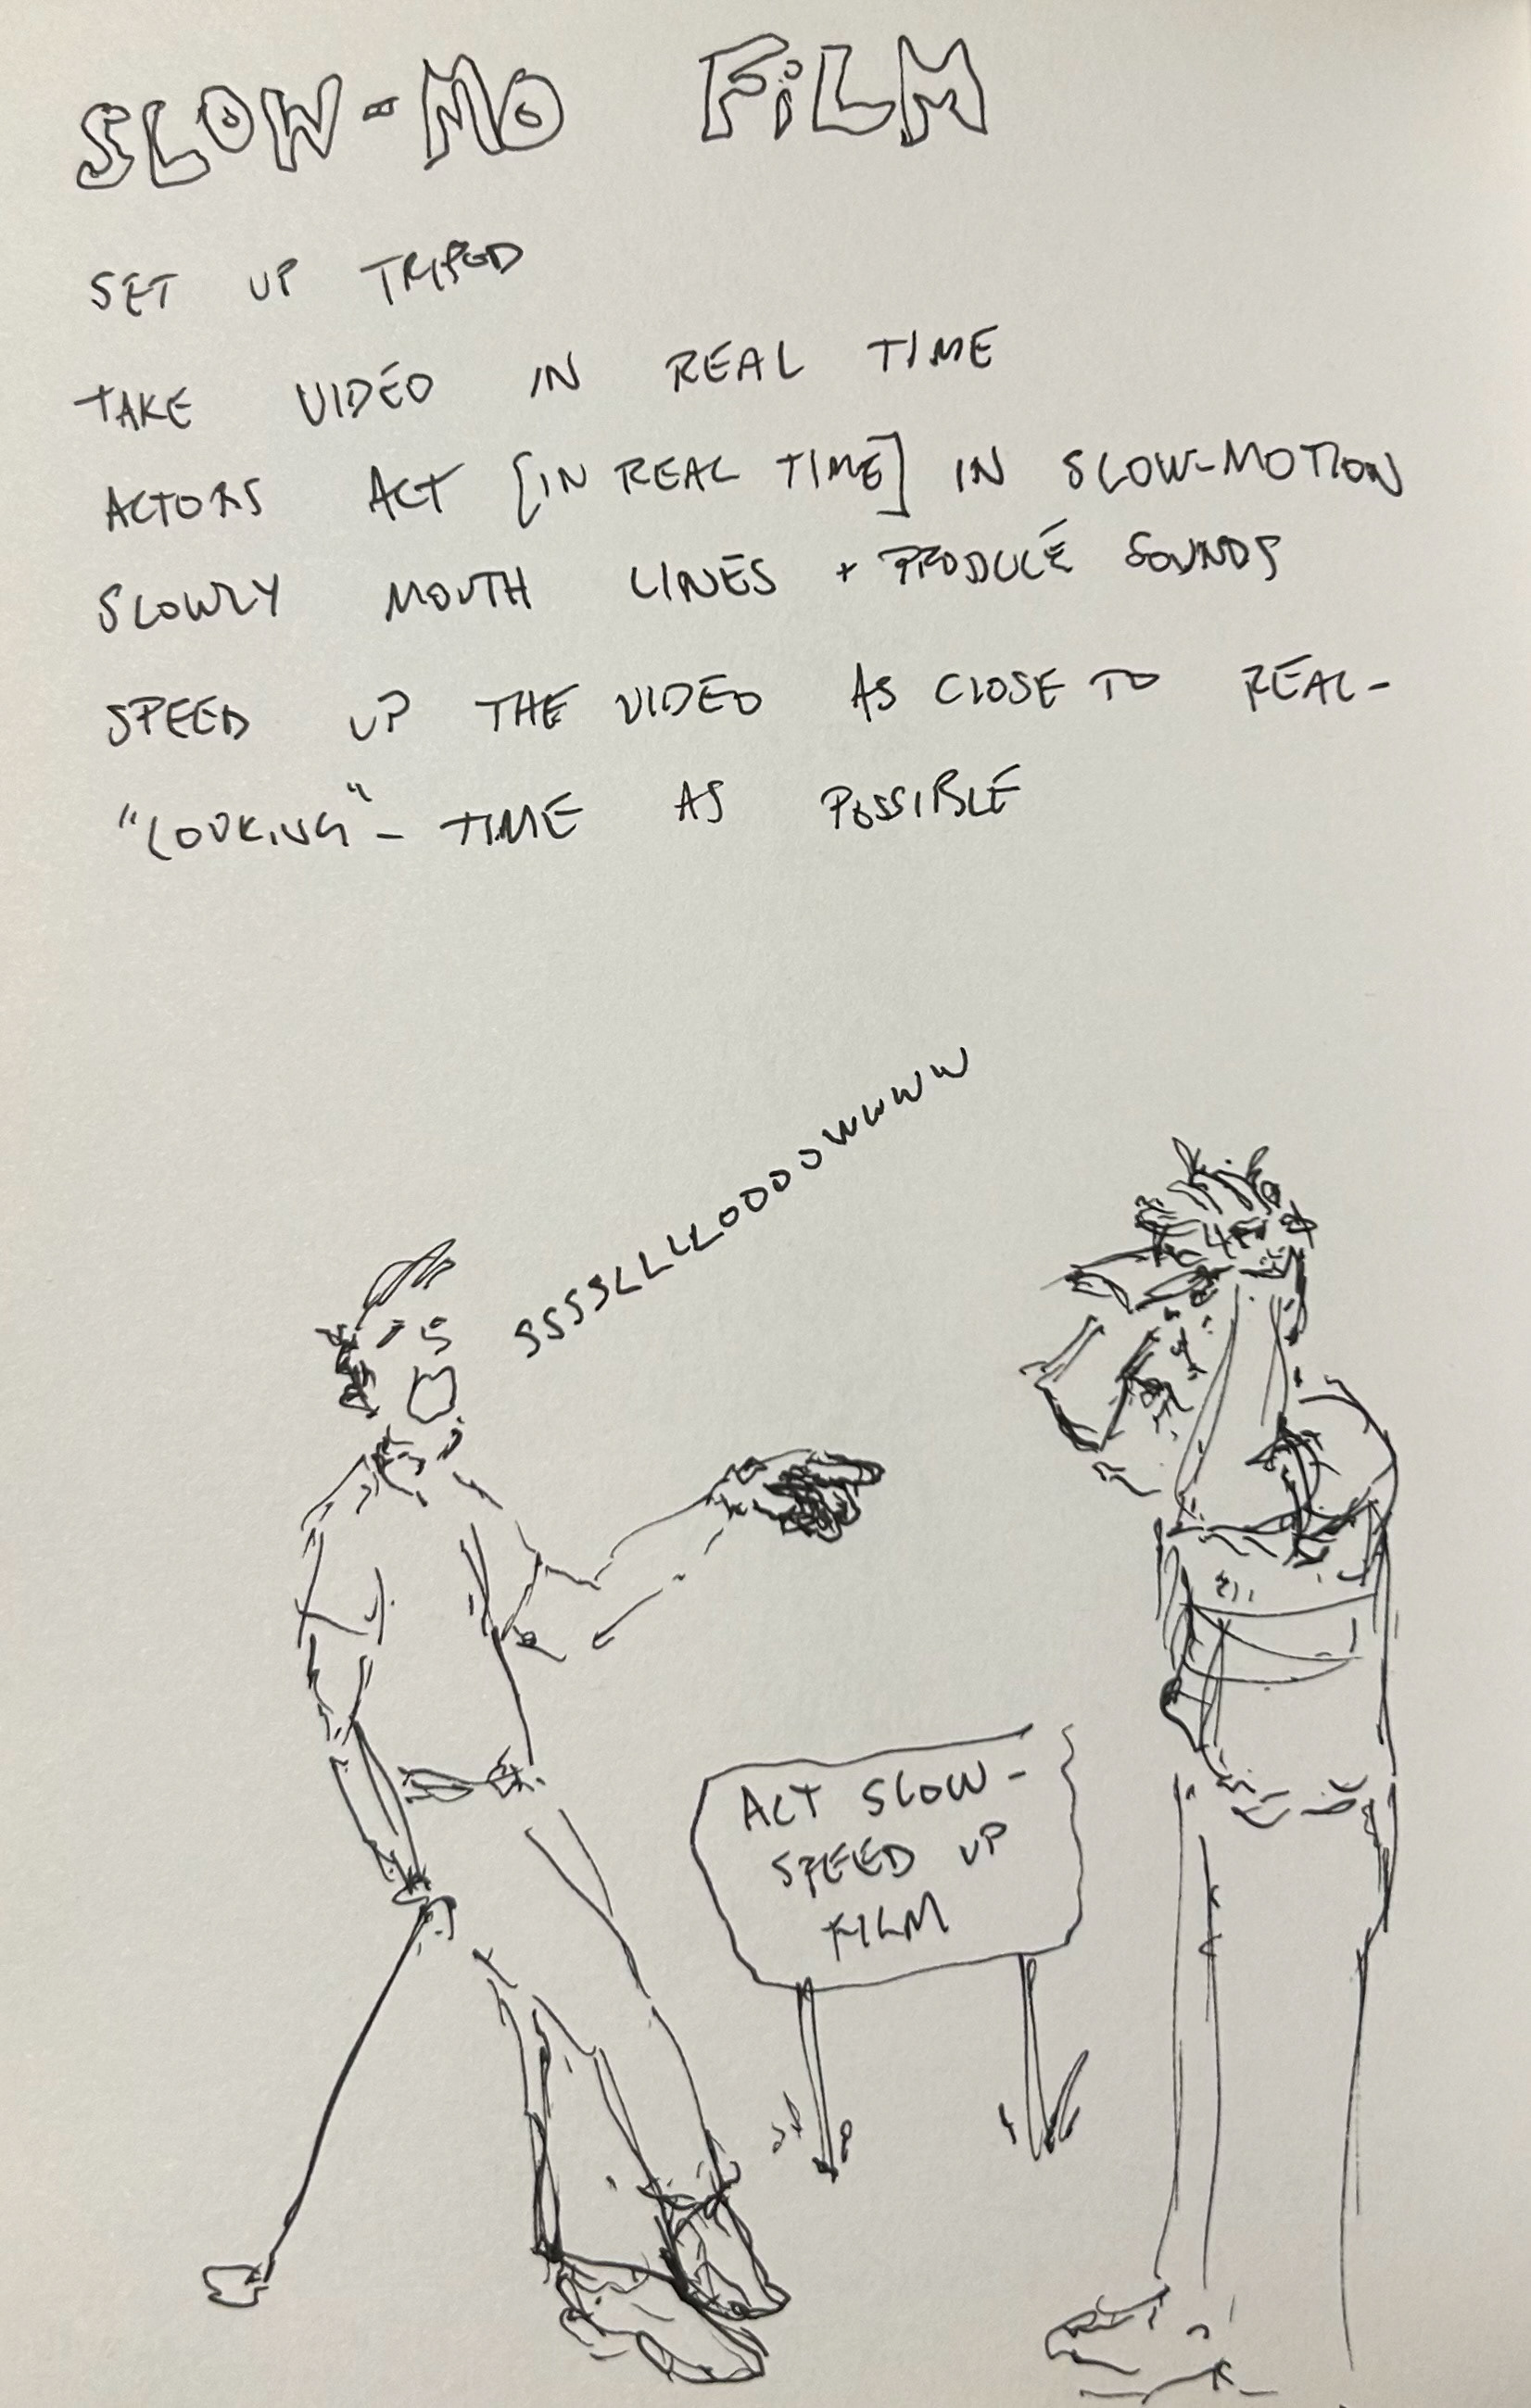 SLOW-MO FILM
SET UP TRIPOD
TAKE VIDEO IN REAL TIME
ACTORS ACT [IN REAL TIME] IN SLOW-MOTION
SLOWLY MOUTH LINES + PRODUCE SOUNDS
SPEED UP THE VIDEO AS CLOSE TO REAL-
"LOOKING"- TIME AS POSSIBLE
SSSSLLLLOOOOWWWW
ACT SLOW-
SPEED UP
FILM